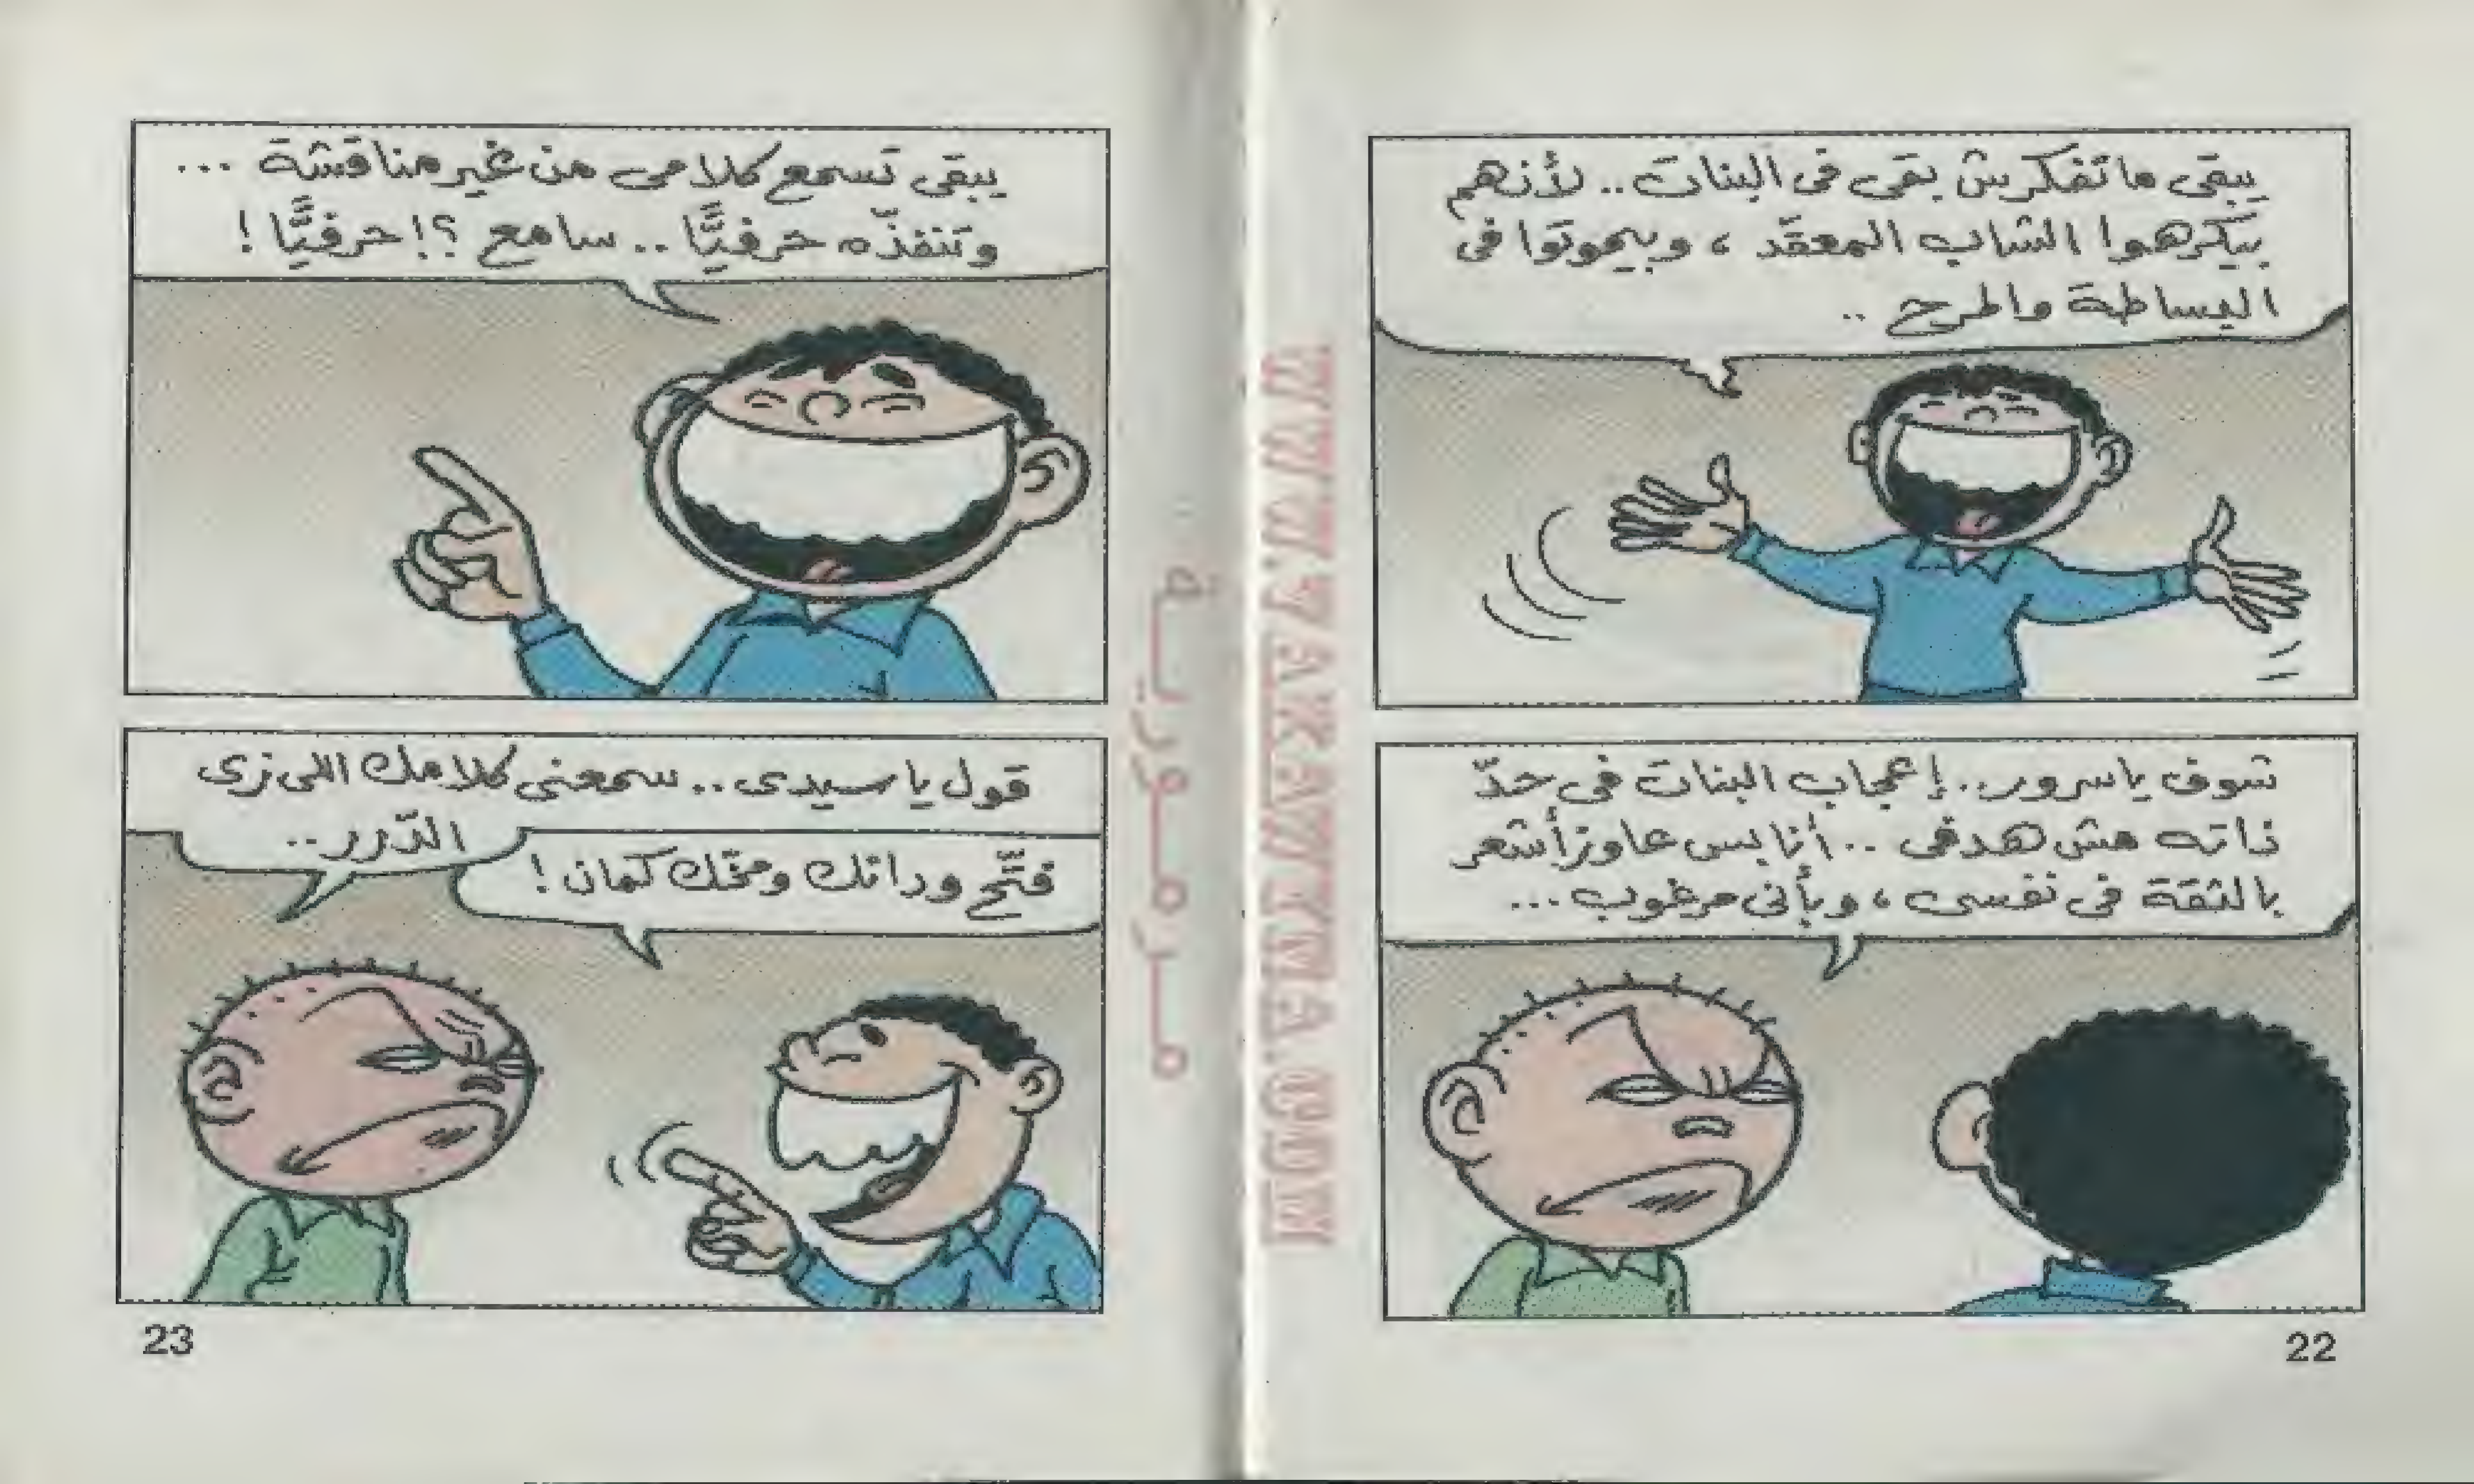 يبقى ماتفكرش بقى فى البنات.. لأنهم
بيكرهوا الشاب المعقّد ، وبيموتوا فى
البساطة والمرح ..
شوف ياسرور.. إعجاب البنات فى حدّ
ذاته مش هدفى .. أنا بس عاوز أشعر
بالثقة فى نفسى ، وبأنى مرغوب...
22
يبقى تسمع كلامى من غير مناقشة ...
وتنفذّه حرفيًّا .. سامع ؟! حرفيًّا !
قول يا سيدى.. سمعنى كلامك اللى زى
الدّرر..
فتّح ودانك ومخّك كمان !
23